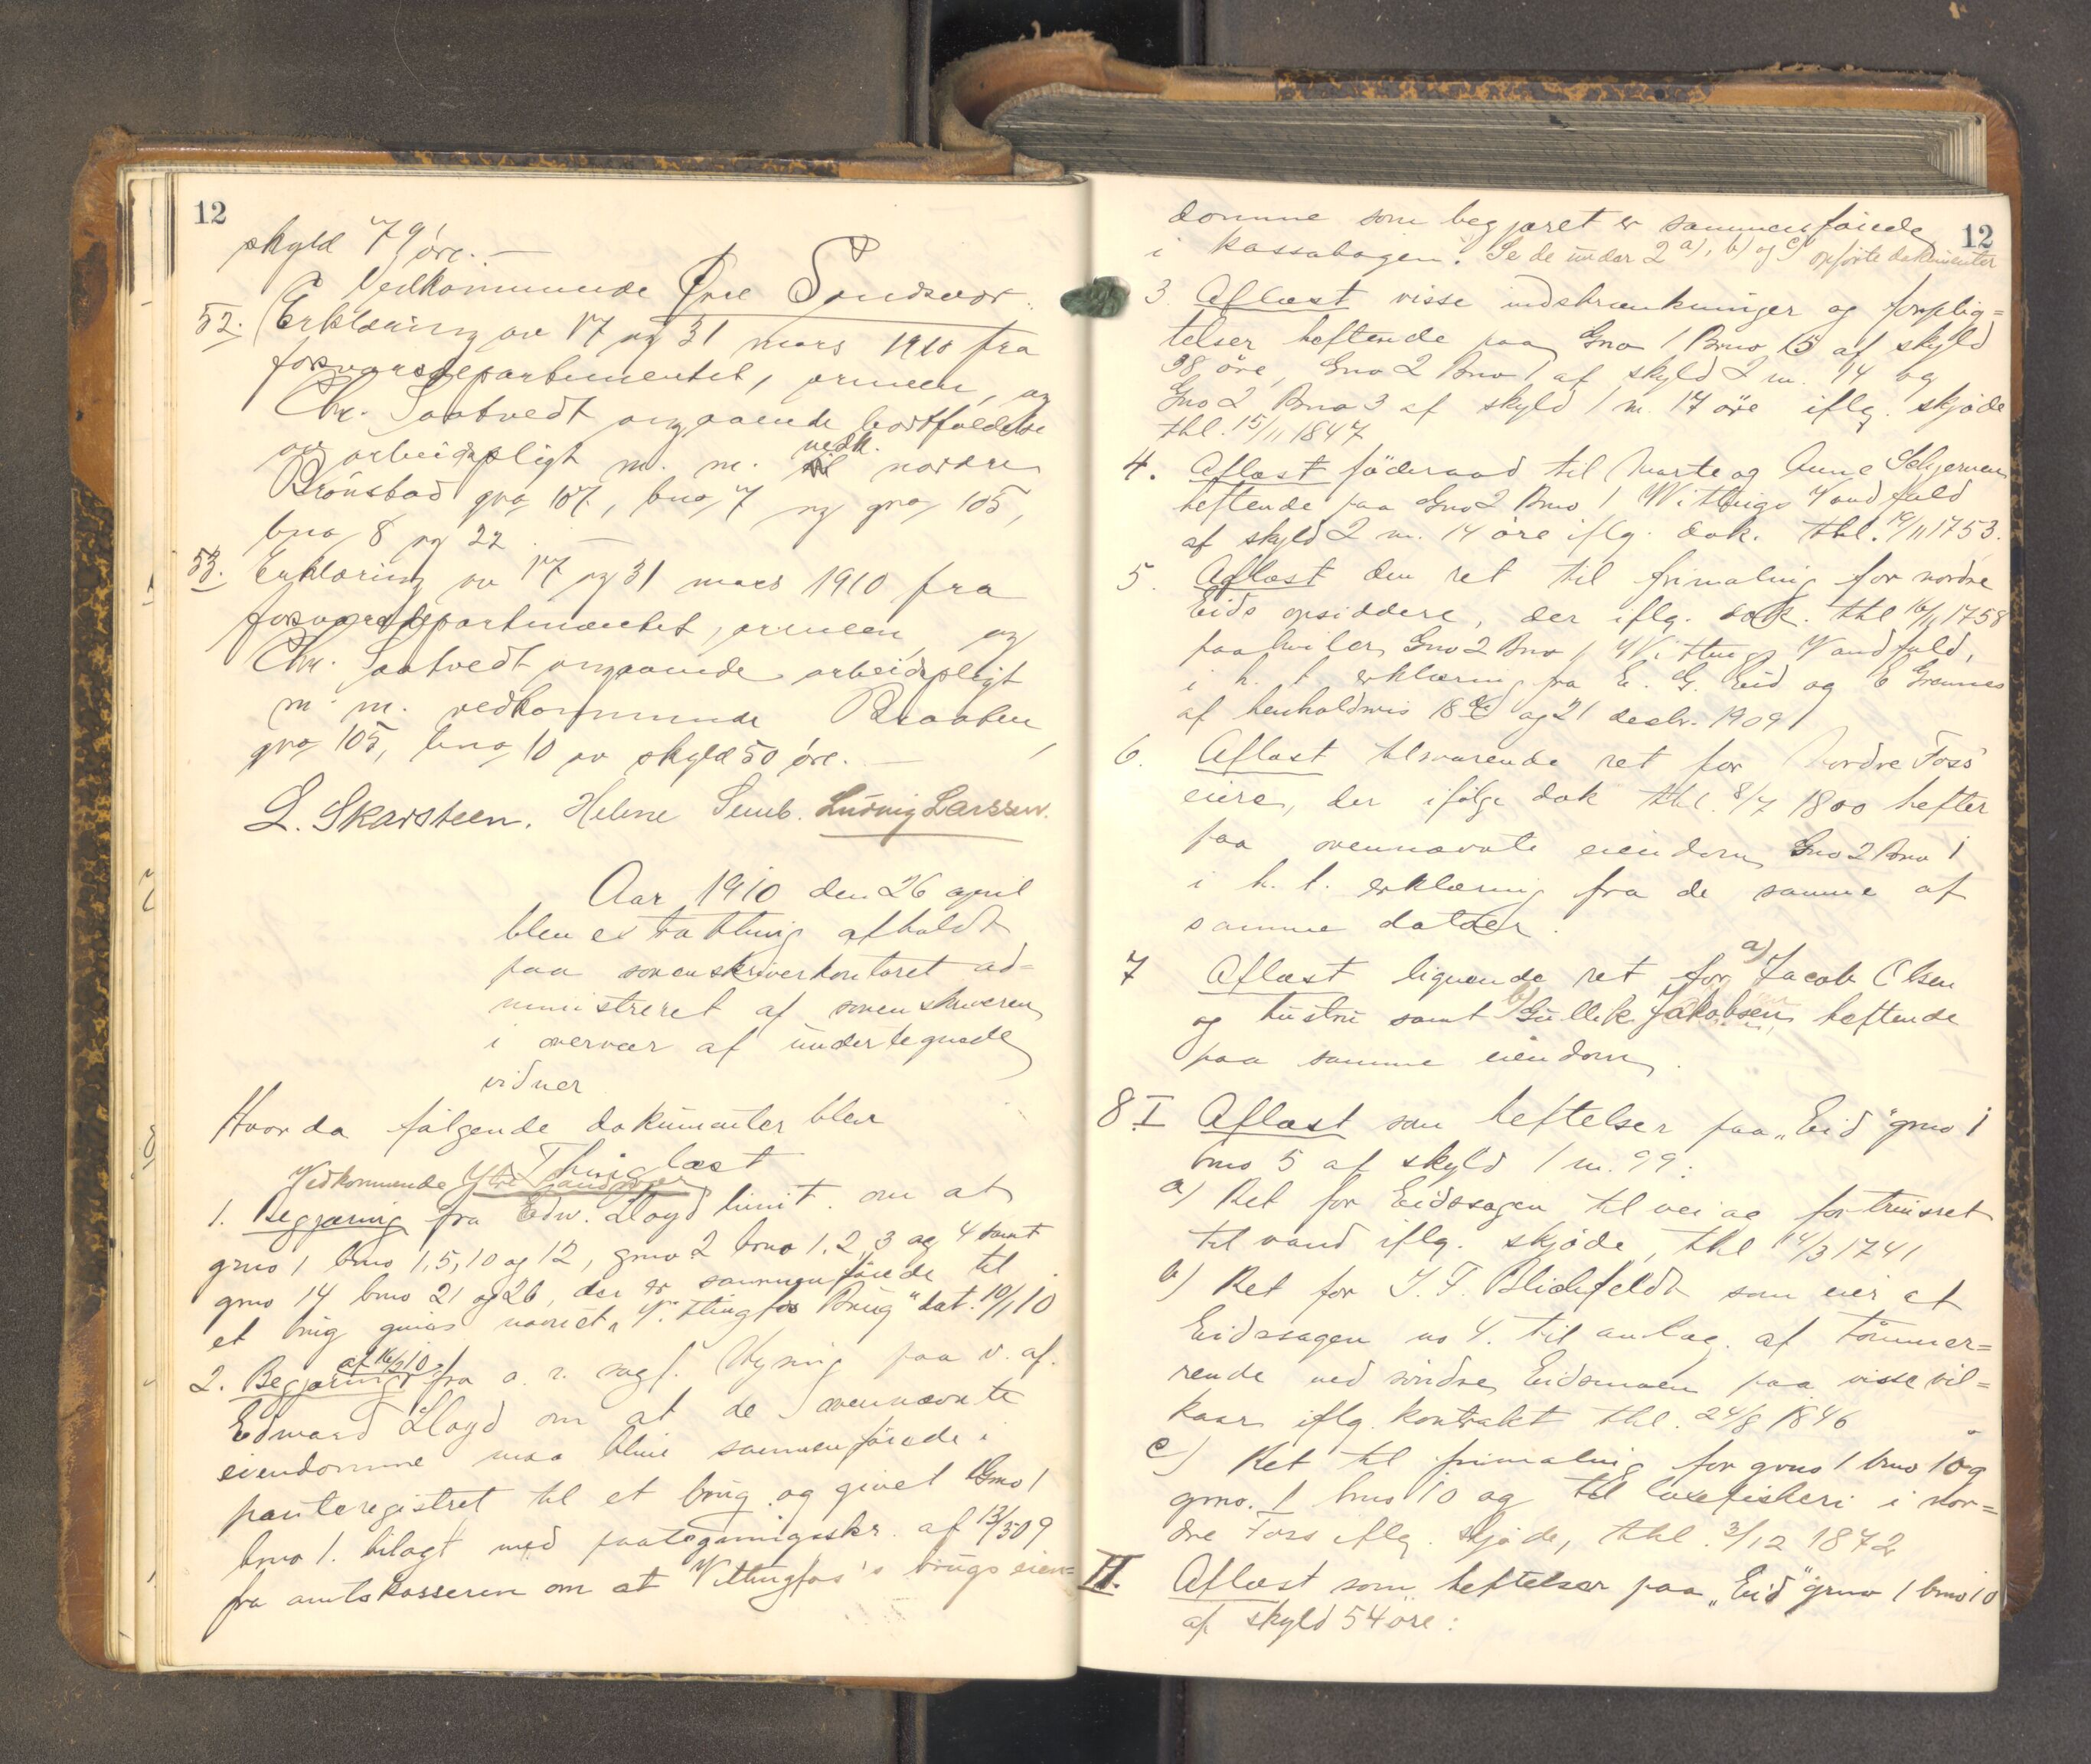 12
skyld 79 øre. —
Vedkommende Øvre Sandsvær:
52. Erklæring av 17 og 31 mars 1910 fra
forsvarsdepartementet, armeen, og
Chr. Saatvedt angaaende bortfaldelse
av arbeidspligt m. m. vedk. nordre
Brønsbad gno 107, bno 7 og gno 105,
bno 8 og 22. —
53. Erklæring av 17 og 31 mars 1910 fra
forsvarsdepartementet, armeen, og
Chr. Saatvedt angaaende arbeidspligt
m. m. vedkommende Braaten,
gno 105, bno 10 av skyld 50 øre. —
L. Skarsteen. Helene Semb. Ludvig Larssen.
Aar 1910 den 26 april
blev extratthing afholdt
paa sorenskriverkontoret ad=
ministreret af sorenskriveren
i overvær af undertegnede
vidner
Hvor da følgende dokumenter blev
Thinglæst
Vedkommende Ytre Sandsvær
1. Begjæring fra Edw. Lloyd limit. om at
gno 1 bno 1, 5, 10 og 12, gno 2 bno 1, 2, 3 og 4 samt
gno 14 bno 21 og 26, der er sammenføiede til
et brug gives navnet „Vittingfos Brug" dat. 10/1 10
2. Begjæring af 16/2 10 fra o. r. sagf. Hysing paa v. af.
Edward Lloyd om at de ovennævnte
eiendomme maa blive sammenføiede i
panteregistret til et brug og givet Gno 1
bno 1. bilagt med paategningsskr. af 13/5 09
fra amtskasseren om at Vittingfos's brugs eien=
12
domme som begjæret er sammenføiede
i kassabogen. Se de under 2 a), b) og c) opførte dokumenter
3. Aflæst visse indskrænkninger og forplig=
telser heftende paa Gno 1 Bno 15 af skyld
38 øre, Gno 2 Bno 1 af skyld 2 m. 14 og
Gno 2 Bno 3 af skyld 1 m. 17 øre iflg. skjøde
thl. 15/11 1847
4. Aflæst føderaad til Marte og Anne Skjerven
heftende paa Gno 2 Bno 1 Wittings Vandfald
af skyld 2 m. 14 øre iflg. dok. thl. 19/11 1753.
5. Aflæst den ret til frimaling for nordre
Eids opsiddere, der iflg. dok. thl 16/11 1758
paahviler Gno 2 Bno 1 Wittings Vandfald,
i h. t. erklæring fra E. G. Eid og E Grønnes
af henholdsvis 18de og 21 decbr. 1909
6. Aflæst tilsvarende ret for Nordre Foss'
eiere, der ifølge dok thl. 8/7 1800 hefter
paa ovennævnte eiendom Gno 2 Bno 1
i h. t. erklæring fra de samme af
samme datoer.
7 Aflæst lignende ret for a) Jacob Olsen
og hustru samt b) Gullik Jakobsen heftende
paa samme eiendom.
8 I Aflæst som heftelser paa „Eid" gno 1
bno 5 af skyld 1 m. 99:
a) Ret for Eidssagen til vei og fortrinsret
til vand iflg. skjøde, thl 14/3 1741
b) Ret for J. F. Blichfeldt som eier at
Eidssagen no 4. til anlæg. af tømmer=
rende ved søndre Eidsmoen paa visse vil=
kaar iflg. kontrakt thl. 24/8 1846
c) Ret til frimaling for gno 1 bno 1 og
gno. 1 bno 10 og til laxefiskeri i nor=
dre Foss iflg. skjøde, thl. 3/12 1872
II. Aflæst som heftelser paa „Eid" gno 1 bno 10
af skyld 54 øre: